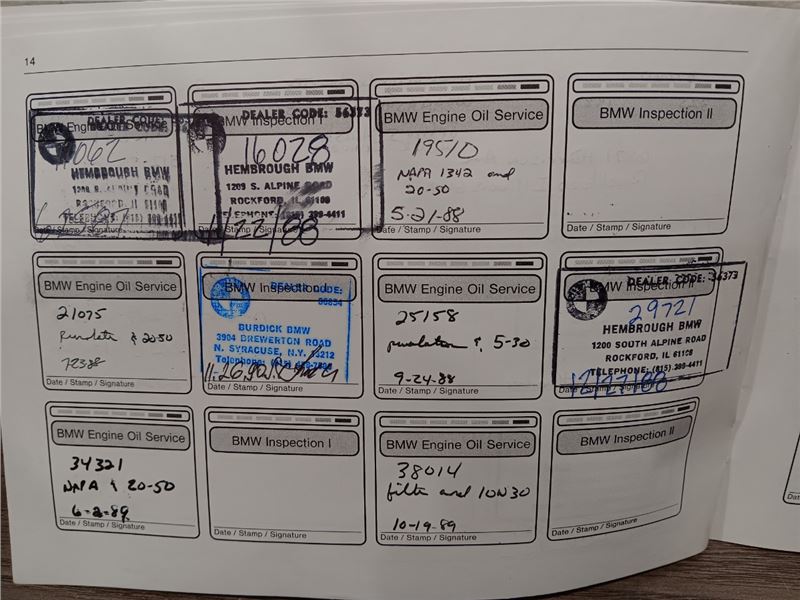 14
DEALER CODE:
BMW Engine Oil Service
062
HEMBROUGH BMW
TELEPHONE: (815) 399-4411
Date / Stamp / Signature
DEALER CODE: 56373
BMW Inspection I
16028
HEMBROUGH BMW
1209 S. ALPINE ROAD
ROCKFORD, IL 61108
TELEPHONE: (815) 399-4411
1/22/88
Date / Stamp / Signature
BMW Engine Oil Service
19510
NAPA 1342 and
20-50
5-21-88
Date / Stamp / Signature
BMW Inspection II
Date / Stamp / Signature
BMW Engine Oil Service
21075
& 20-50
Date / Stamp / Signature
BMW Inspection I
DEALER CODE:
BURDICK BMW
3904 BREWERTON ROAD
N. SYRACUSE, N.Y. 13212
Telephone: (315)
11-26-90
Date / Stamp / Signature
BMW Engine Oil Service
25158
& 5-30
9-24-88
Date / Stamp / Signature
DEALER CODE: 56373
BMW Inspection II
29721
HEMBROUGH BMW
1200 SOUTH ALPINE ROAD
ROCKFORD, IL 61108
TELEPHONE: (815) 399-4411
12/27/88
Date / Stamp / Signature
BMW Engine Oil Service
34321
NAPA & 20-50
6-2-89
Date / Stamp / Signature
BMW Inspection I
Date / Stamp / Signature
BMW Engine Oil Service
38014
filter and 10W30
10-19-89
Date / Stamp / Signature
BMW Inspection II
Date / Stamp / Signature